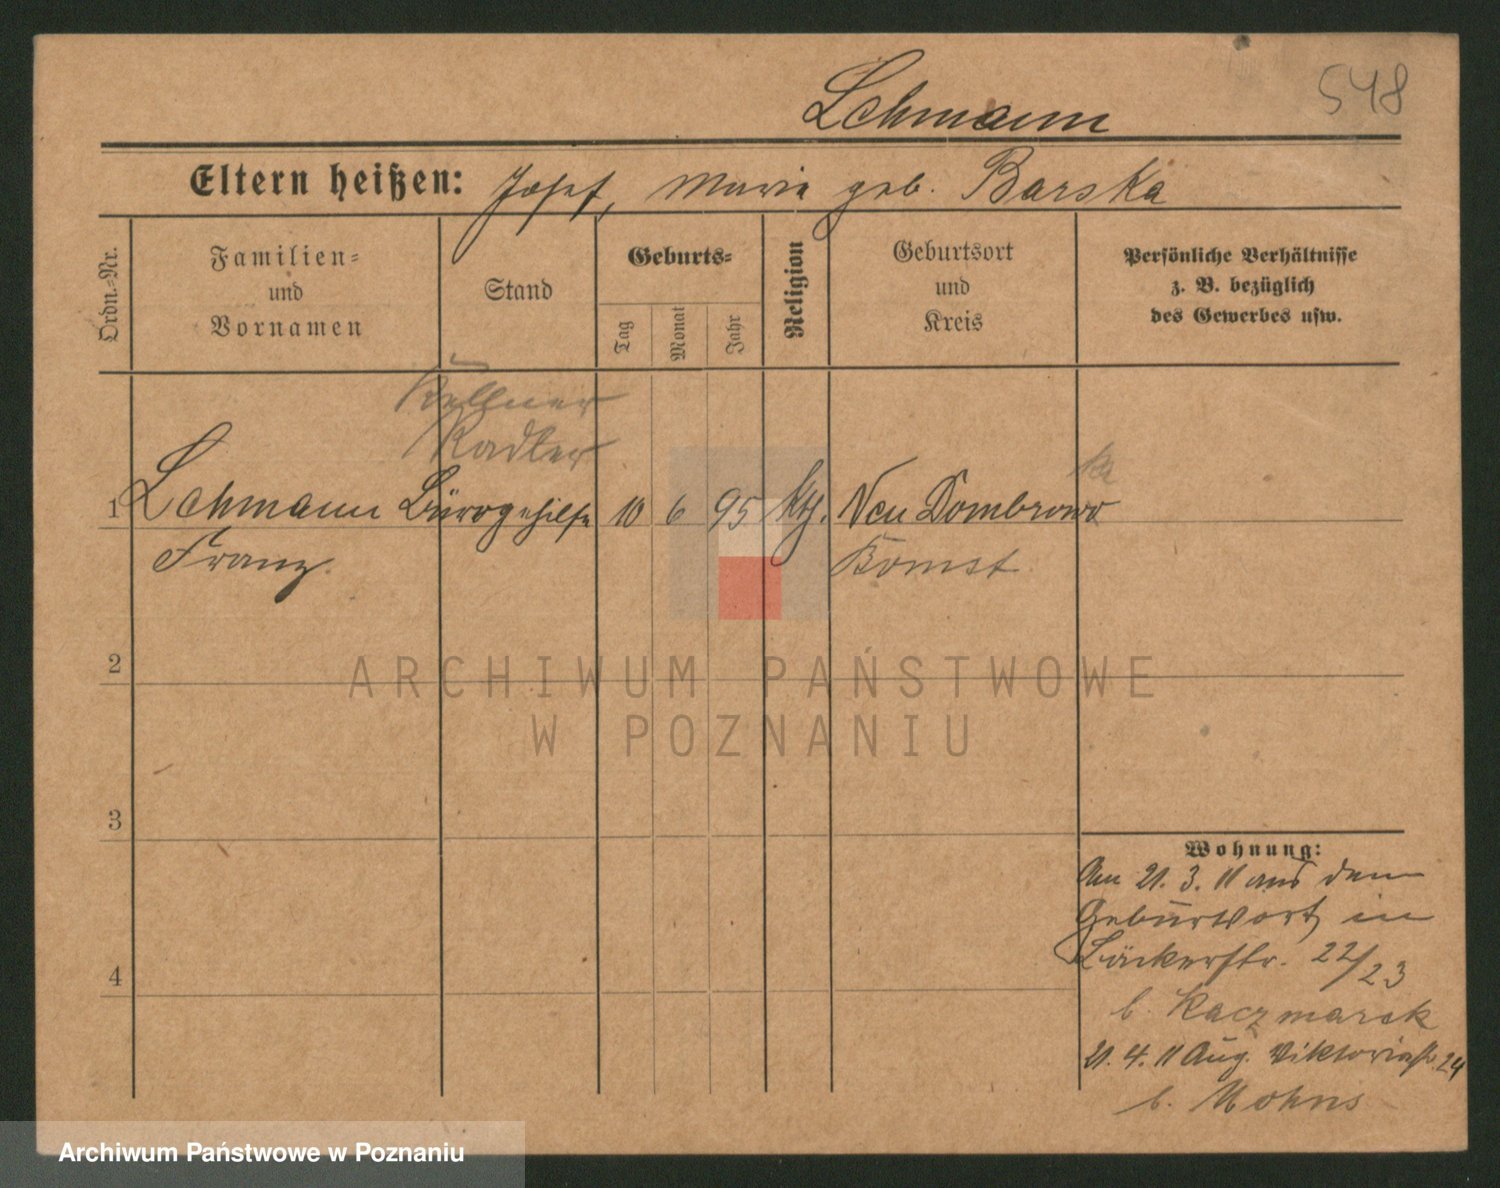 548
Lehmann
Eltern heißen: Josef, Marie geb. Barska
Ordn.-Nr.
Familien-
und
Vornamen
Stand
Geburts-
Tag
Monat
Jahr
Religion
Geburtsort
und
Kreis
Persönliche Verhältnisse
z. B. bezüglich
des Gewerbes usw.
Kellner
Radler
1 Lehmann Bürogehilfe 10 6 95 kth. Neu Dombrowo
Franz. Bomst
2
3
4
Wohnung:
Am 21. 3. 11 aus dem
Geburtsort in
Bäckerstr. 22/23
b. Kaczmarek
21. 4. 11 Aug. Viktoriastr. 24
b. Mohns
ARCHIWUM PAŃSTWOWE
W POZNANIU
Archiwum Państwowe w Poznaniu